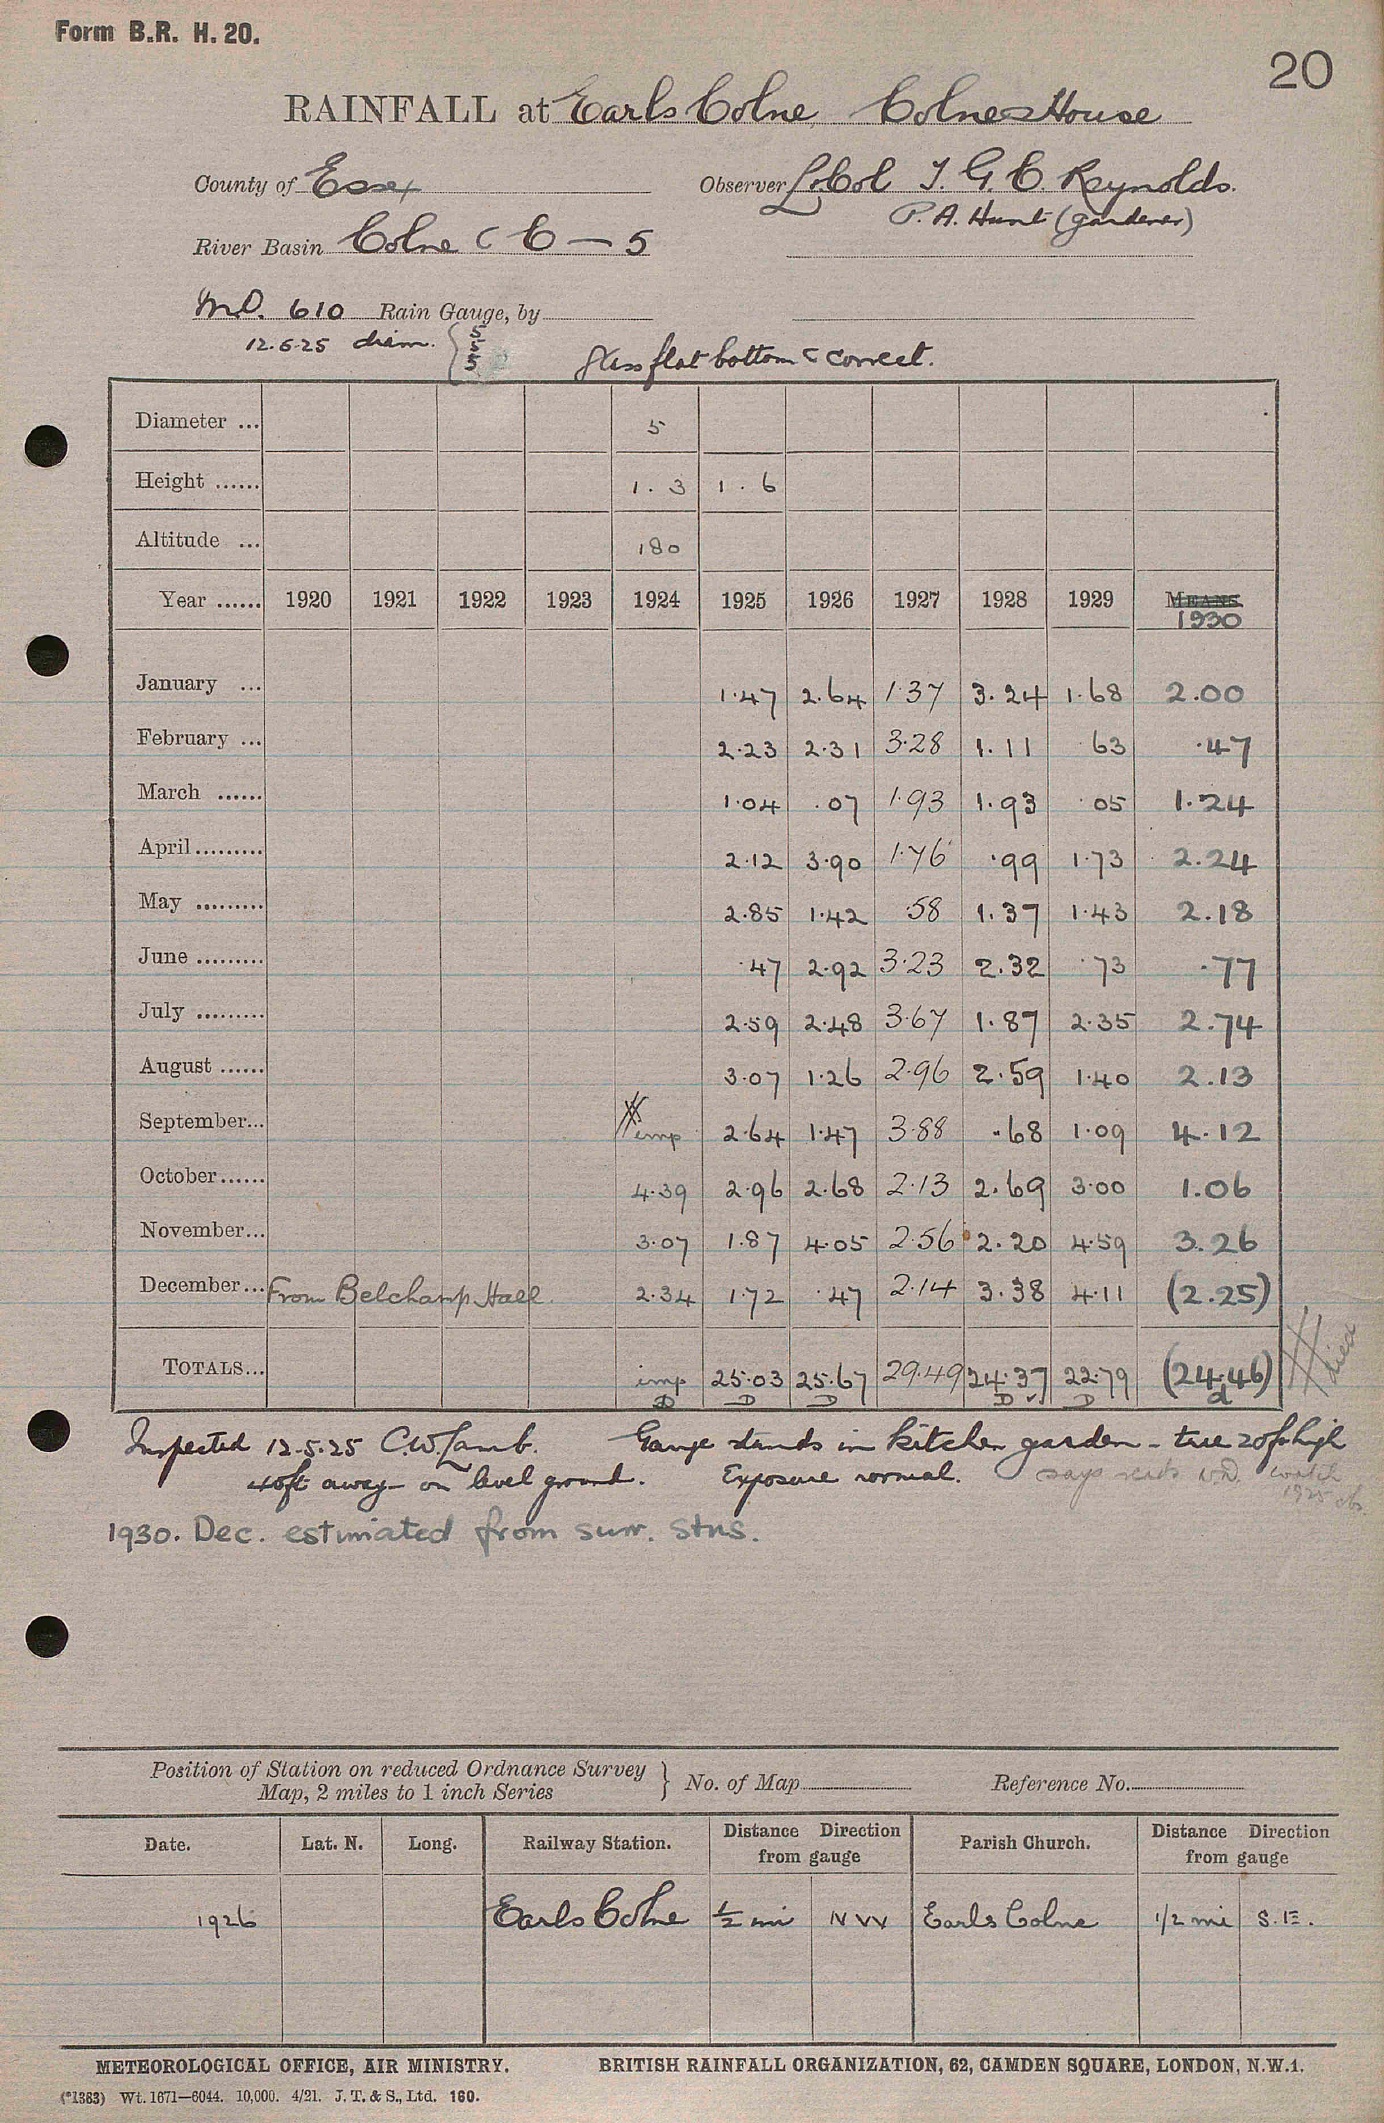 Form B.R. H. 20.
20
RAINFALL at Earls Colne, Colne House
County of Essex
Observer Lt. Col I. G. E. Reynolds.
P. A. Hunt (gardener)
River Basin Colne C C — 5
M.O. 610 Rain Gauge, by
12.6.25 diam. { 5 5 5 glass flat bottom & correct.
Diameter ... 5
Height ...... 1.3 1.6
Altitude ... 180
Year ...... 1920 1921 1922 1923 1924 1925 1926 1927 1928 1929 MEANS. 1930
January ... 1.47 2.64 1.37 3.24 1.68 2.00
February ... 2.23 2.31 3.28 1.11 .63 .47
March ...... 1.04 .07 1.93 1.93 .05 1.24
April ......... 2.12 3.90 1.76 .99 1.73 2.24
May ......... 2.85 1.42 .58 1.37 1.43 2.18
June ......... .47 2.92 3.23 2.32 .73 .77
July ......... 2.59 2.48 3.67 1.87 2.35 2.74
August ...... 3.07 1.26 2.96 2.59 1.40 2.13
September... imp 2.64 1.47 3.88 .68 1.09 4.12
October...... 4.39 2.96 2.68 2.13 2.69 3.00 1.06
November... 3.07 1.87 4.05 2.56 2.20 4.59 3.26
December... From Belchamp Hall 2.34 1.72 .47 2.14 3.38 4.11 (2.25)
TOTALS... imp 25.03 25.67 29.49 24.37 22.79 (24.46) died
D D D D D d
Inspected 12.5.25 C.W. Lamb. Gauge stands in kitchen garden - tree 20ft high
40ft away - on level ground. Exposure normal. says
1925 obs
1930. Dec. estimated from surr. stns.
Position of Station on reduced Ordnance Survey
Map, 2 miles to 1 inch Series } No. of Map Reference No.
Date. Lat. N. Long. Railway Station. Distance Direction from gauge Parish Church. Distance Direction from gauge
1926 Earls Colne 1/2 mi NW Earls Colne 1/2 mi S.E.
METEOROLOGICAL OFFICE, AIR MINISTRY. BRITISH RAINFALL ORGANIZATION, 62, CAMDEN SQUARE, LONDON, N.W.1.
(*1383) Wt. 1671—6044. 10,000. 4/21. J. T. & S., Ltd. 160.